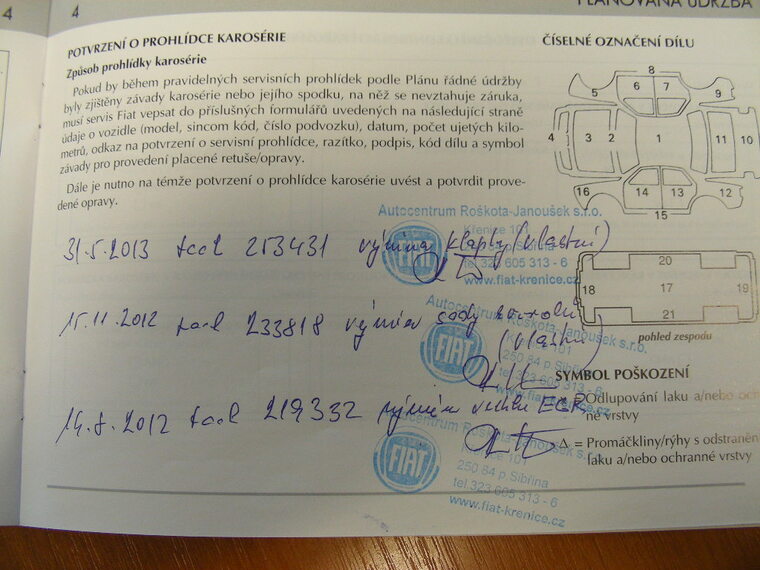 4
4
PLÁNOVANÁ ÚDRŽBA
POTVRZENÍ O PROHLÍDCE KAROSÉRIE
Způsob prohlídky karosérie
Pokud by během pravidelných servisních prohlídek podle Plánu řádné údržby
byly zjištěny závady karosérie nebo jejího spodku, na něž se nevztahuje záruka,
musí servis Fiat vepsat do příslušných formulářů uvedených na následující straně
údaje o vozidle (model, sincom kód, číslo podvozku), datum, počet ujetých kilo-
metrů, odkaz na potvrzení o servisní prohlídce, razítko, podpis, kód dílu a symbol
závady pro provedení placené retuše/opravy.
Dále je nutno na témže potvrzení o prohlídce karosérie uvést a potvrdit prove-
dené opravy.
ČÍSELNÉ OZNAČENÍ DÍLU
8
5 6 7 9
4 3 2 1 11 10
16 14 13 12
15
20
18 17 19
21
pohled zespodu
SYMBOL POŠKOZENÍ
= Odlupování laku a/nebo och
né vrstvy
Δ = Promáčkliny/rýhy s odstraněn
laku a/nebo ochranné vrstvy
Autocentrum Roškota-Janoušek s.r.o.
Křenice 101
Sibřina
tel.323 605 313 - 6
www.fiat-krenice.cz
FIAT
31.5.2013 tach 253431 výměna klapky (vlastní)
Autocentrum Roškota-Janoušek s.r.o.
Křenice 101
250 84 p.Sibřina
tel.323 605 313 - 6
www.fiat-krenice.cz
FIAT
15.11.2012 tach 233818 výměna sady
(vlastní
14.8.2012 tach 219332 výměna ventilu EGR
Autocentrum Roškota-Janoušek s.r.o.
Křenice 101
250 84 p.Sibřina
tel.323 605 313 - 6
www.fiat-krenice.cz
FIAT